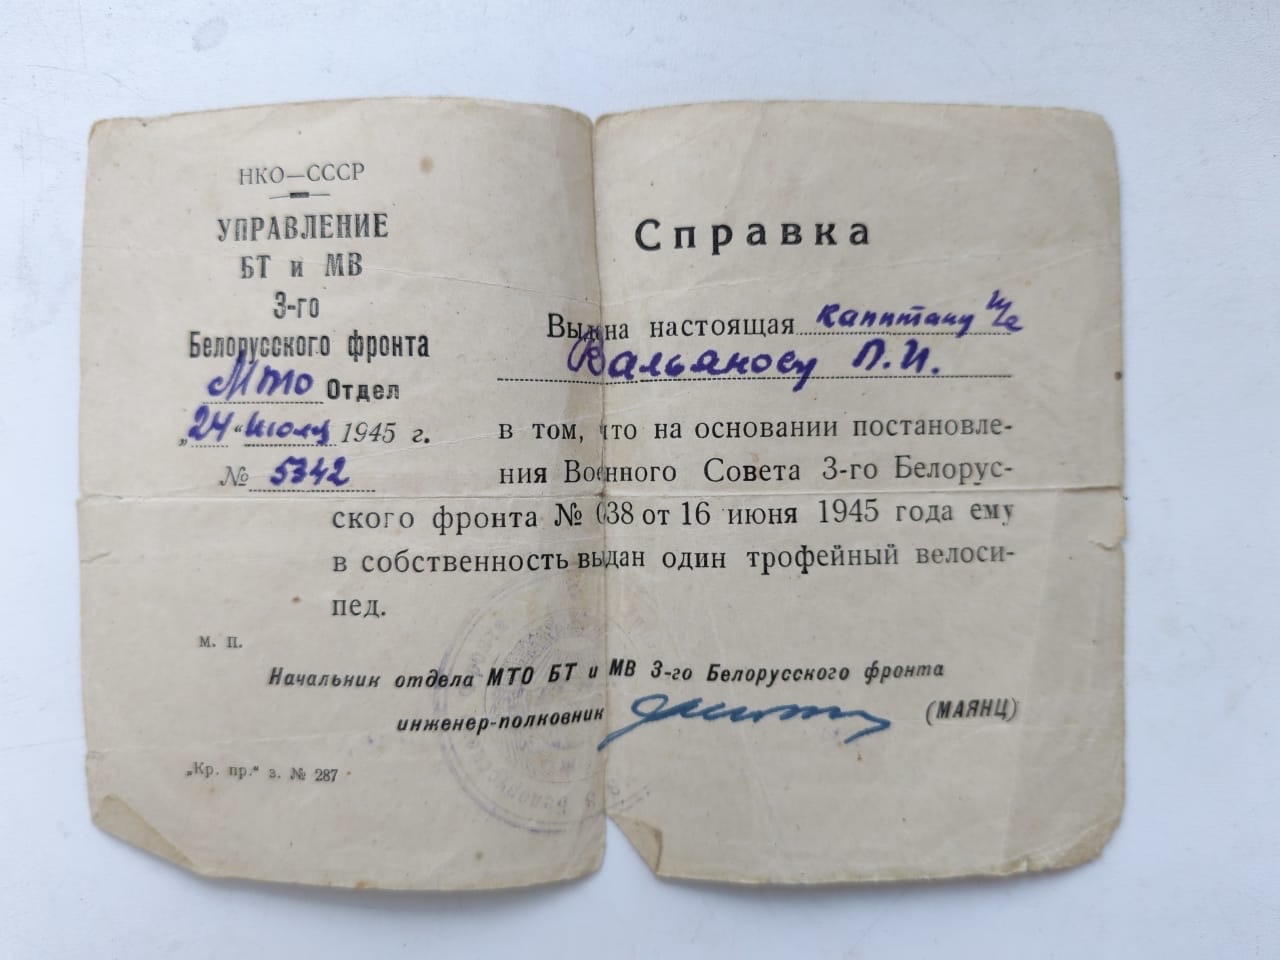 НКО—СССР
УПРАВЛЕНИЕ
БТ и МВ
3-го
Белорусского фронта
МТО Отдел
„24“ июля 1945 г.
№ 5342
Справка
Выдана настоящая капитану т/с
Вальяносу П.И.
в том, что на основании постановле-
ния Военного Совета 3-го Белорус-
ского фронта № 038 от 16 июня 1945 года ему
в собственность выдан один трофейный велоси-
пед.
м. п.
Начальник отдела МТО БТ и МВ 3-го Белорусского фронта
инженер-полковник (МАЯНЦ)
„Кр. пр.“ з. № 287